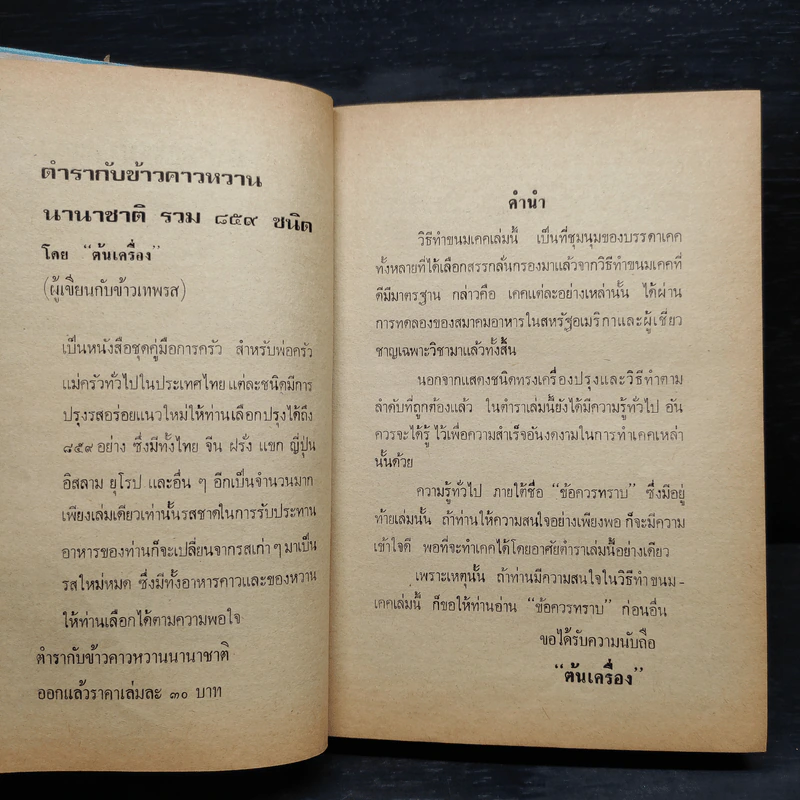 ตำรากับข้าวคาวหวาน
นานาชาติ รวม ๘๕๙ ชนิด
โดย “ต้นเครื่อง”
(ผู้เขียนกับข้าวเทพรส)
เป็นหนังสือชุดคู่มือการครัว สำหรับพ่อครัว
แม่ครัวทั่วไปในประเทศไทย แต่ละชนิดมีการ
ปรุงรสอร่อยแนวใหม่ให้ท่านเลือกปรุงได้ถึง
๘๕๙ อย่าง ซึ่งมีทั้งไทย จีน ฝรั่ง แขก ญี่ปุ่น
อิสลาม ยุโรป และอื่น ๆ อีกเป็นจำนวนมาก
เพียงเล่มเดียวเท่านั้นรสชาดในการรับประทาน
อาหารของท่านก็จะเปลี่ยนจากรสเก่า ๆ มาเป็น
รสใหม่หมด ซึ่งมีทั้งอาหารคาวและของหวาน
ให้ท่านเลือกได้ตามความพอใจ
ตำรากับข้าวคาวหวานนานาชาติ
ออกแล้วราคาเล่มละ ๓๐ บาท
คำนำ
วิธีทำขนมเคคเล่มนี้ เป็นที่ชุมนุมของบรรดาเคค
ทั้งหลายที่ได้เลือกสรรกลั่นกรองมาแล้วจากวิธีทำขนมเคคที่
ดีมีมาตรฐาน กล่าวคือ เคคแต่ละอย่างเหล่านั้น ได้ผ่าน
การทดลองของสมาคมอาหารในสหรัฐอเมริกาและผู้เชี่ยว
ชาญเฉพาะวิชามาแล้วทั้งสิ้น
นอกจากแสดงชนิดทรงเครื่องปรุงและวิธีทำตาม
ลำดับที่ถูกต้องแล้ว ในตำราเล่มนี้ยังได้มีความรู้ทั่วไป อัน
ควรจะได้รู้ ไว้เพื่อความสำเร็จอันงดงามในการทำเคคเหล่า
นั้นด้วย
ความรู้ทั่วไป ภายใต้ชื่อ “ข้อควรทราบ” ซึ่งมีอยู่
ท้ายเล่มนั้น ถ้าท่านให้ความสนใจอย่างเพียงพอ ก็จะมีความ
เข้าใจดี พอที่จะทำเคคได้โดยอาศัยตำราเล่มนี้อย่างเดียว
เพราะเหตุนั้น ถ้าท่านมีความสนใจในวิธีทำขนม-
เคคเล่มนี้ ก็ขอให้ท่านอ่าน “ข้อควรทราบ” ก่อนอื่น
ขอได้รับความนับถือ
“ต้นเครื่อง”